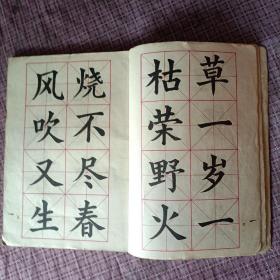 草一岁一
枯荣野火
烧不尽春
风吹又生